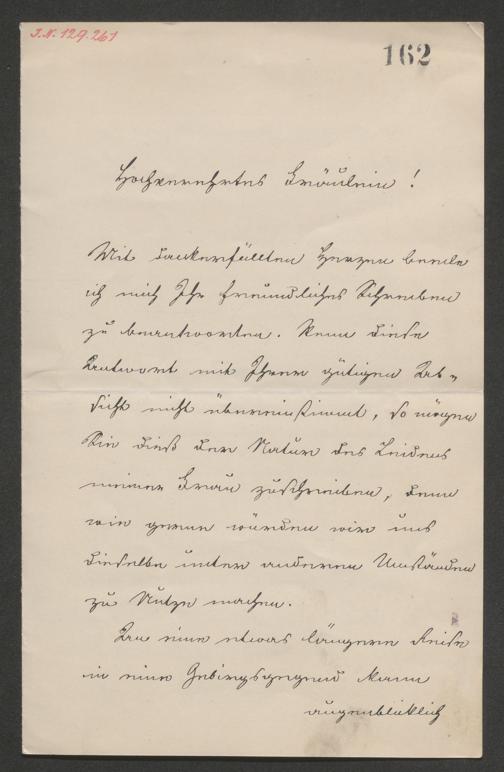 J.N. 129.261
162
Hochverehrtes Fräulein!
Mit dankerfülltem Herzen beeile
ich mich Ihr freundliches Schreiben
zu beantworten. Wenn diese
Antwort mit Ihrer gütigen Ab-
sicht nicht übereinstimmt, so mögen
Sie dieß der Natur des Leidens
meiner Frau zuschreiben, denn
wie gerne würden wir uns
dieselbe unter anderen Umständen
zu Nutze machen.
An eine etwas längere Reise
in eine Gebirgsgegend kann
augenblicklich